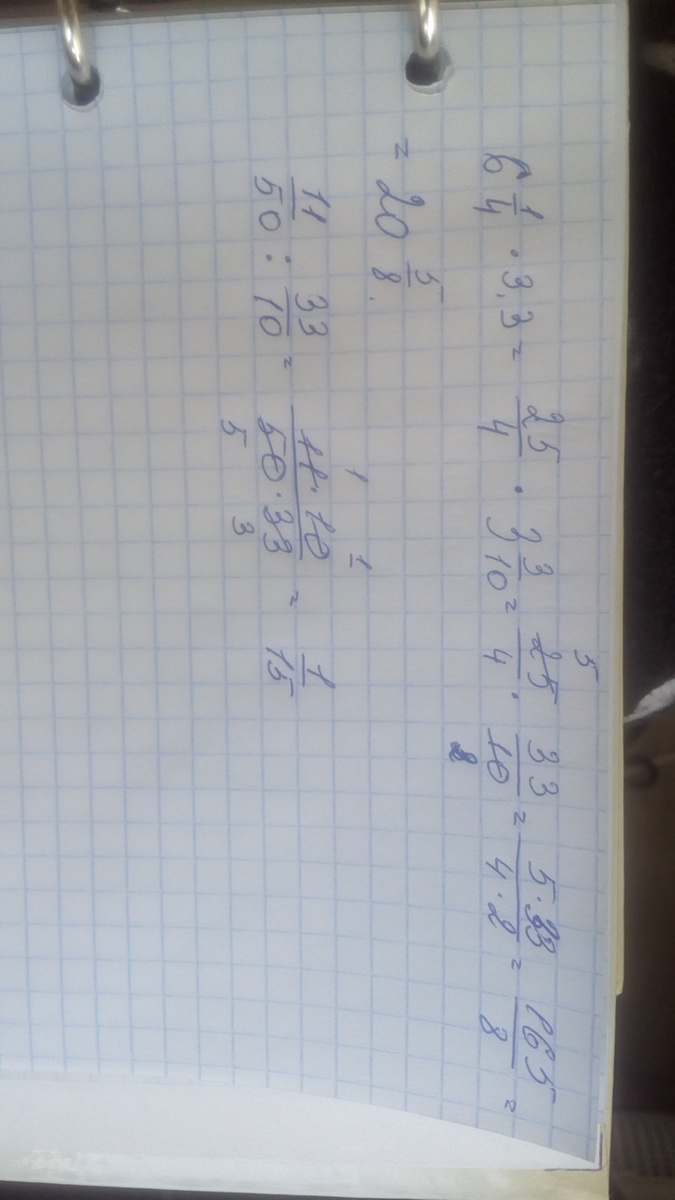 6 1/4 · 3,3 = 25/4 · 3 3/10 = 25/4 · 33/10 = 5·33/4·2 = 165/8 =
5
2
= 20 5/8.
1 1
11/50 : 33/10 = 11·10/50·33 = 1/15
5 3